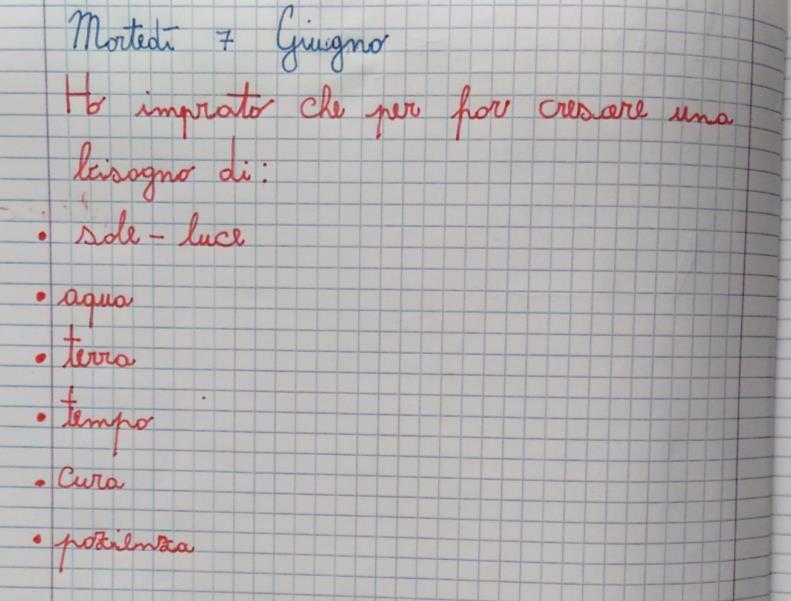 Martedì 7 Giugno
Ho imprato che per far cresare una
bisogno di:
• sole - luce
• aqua
• terra
• tempo
• cura
• pazienza